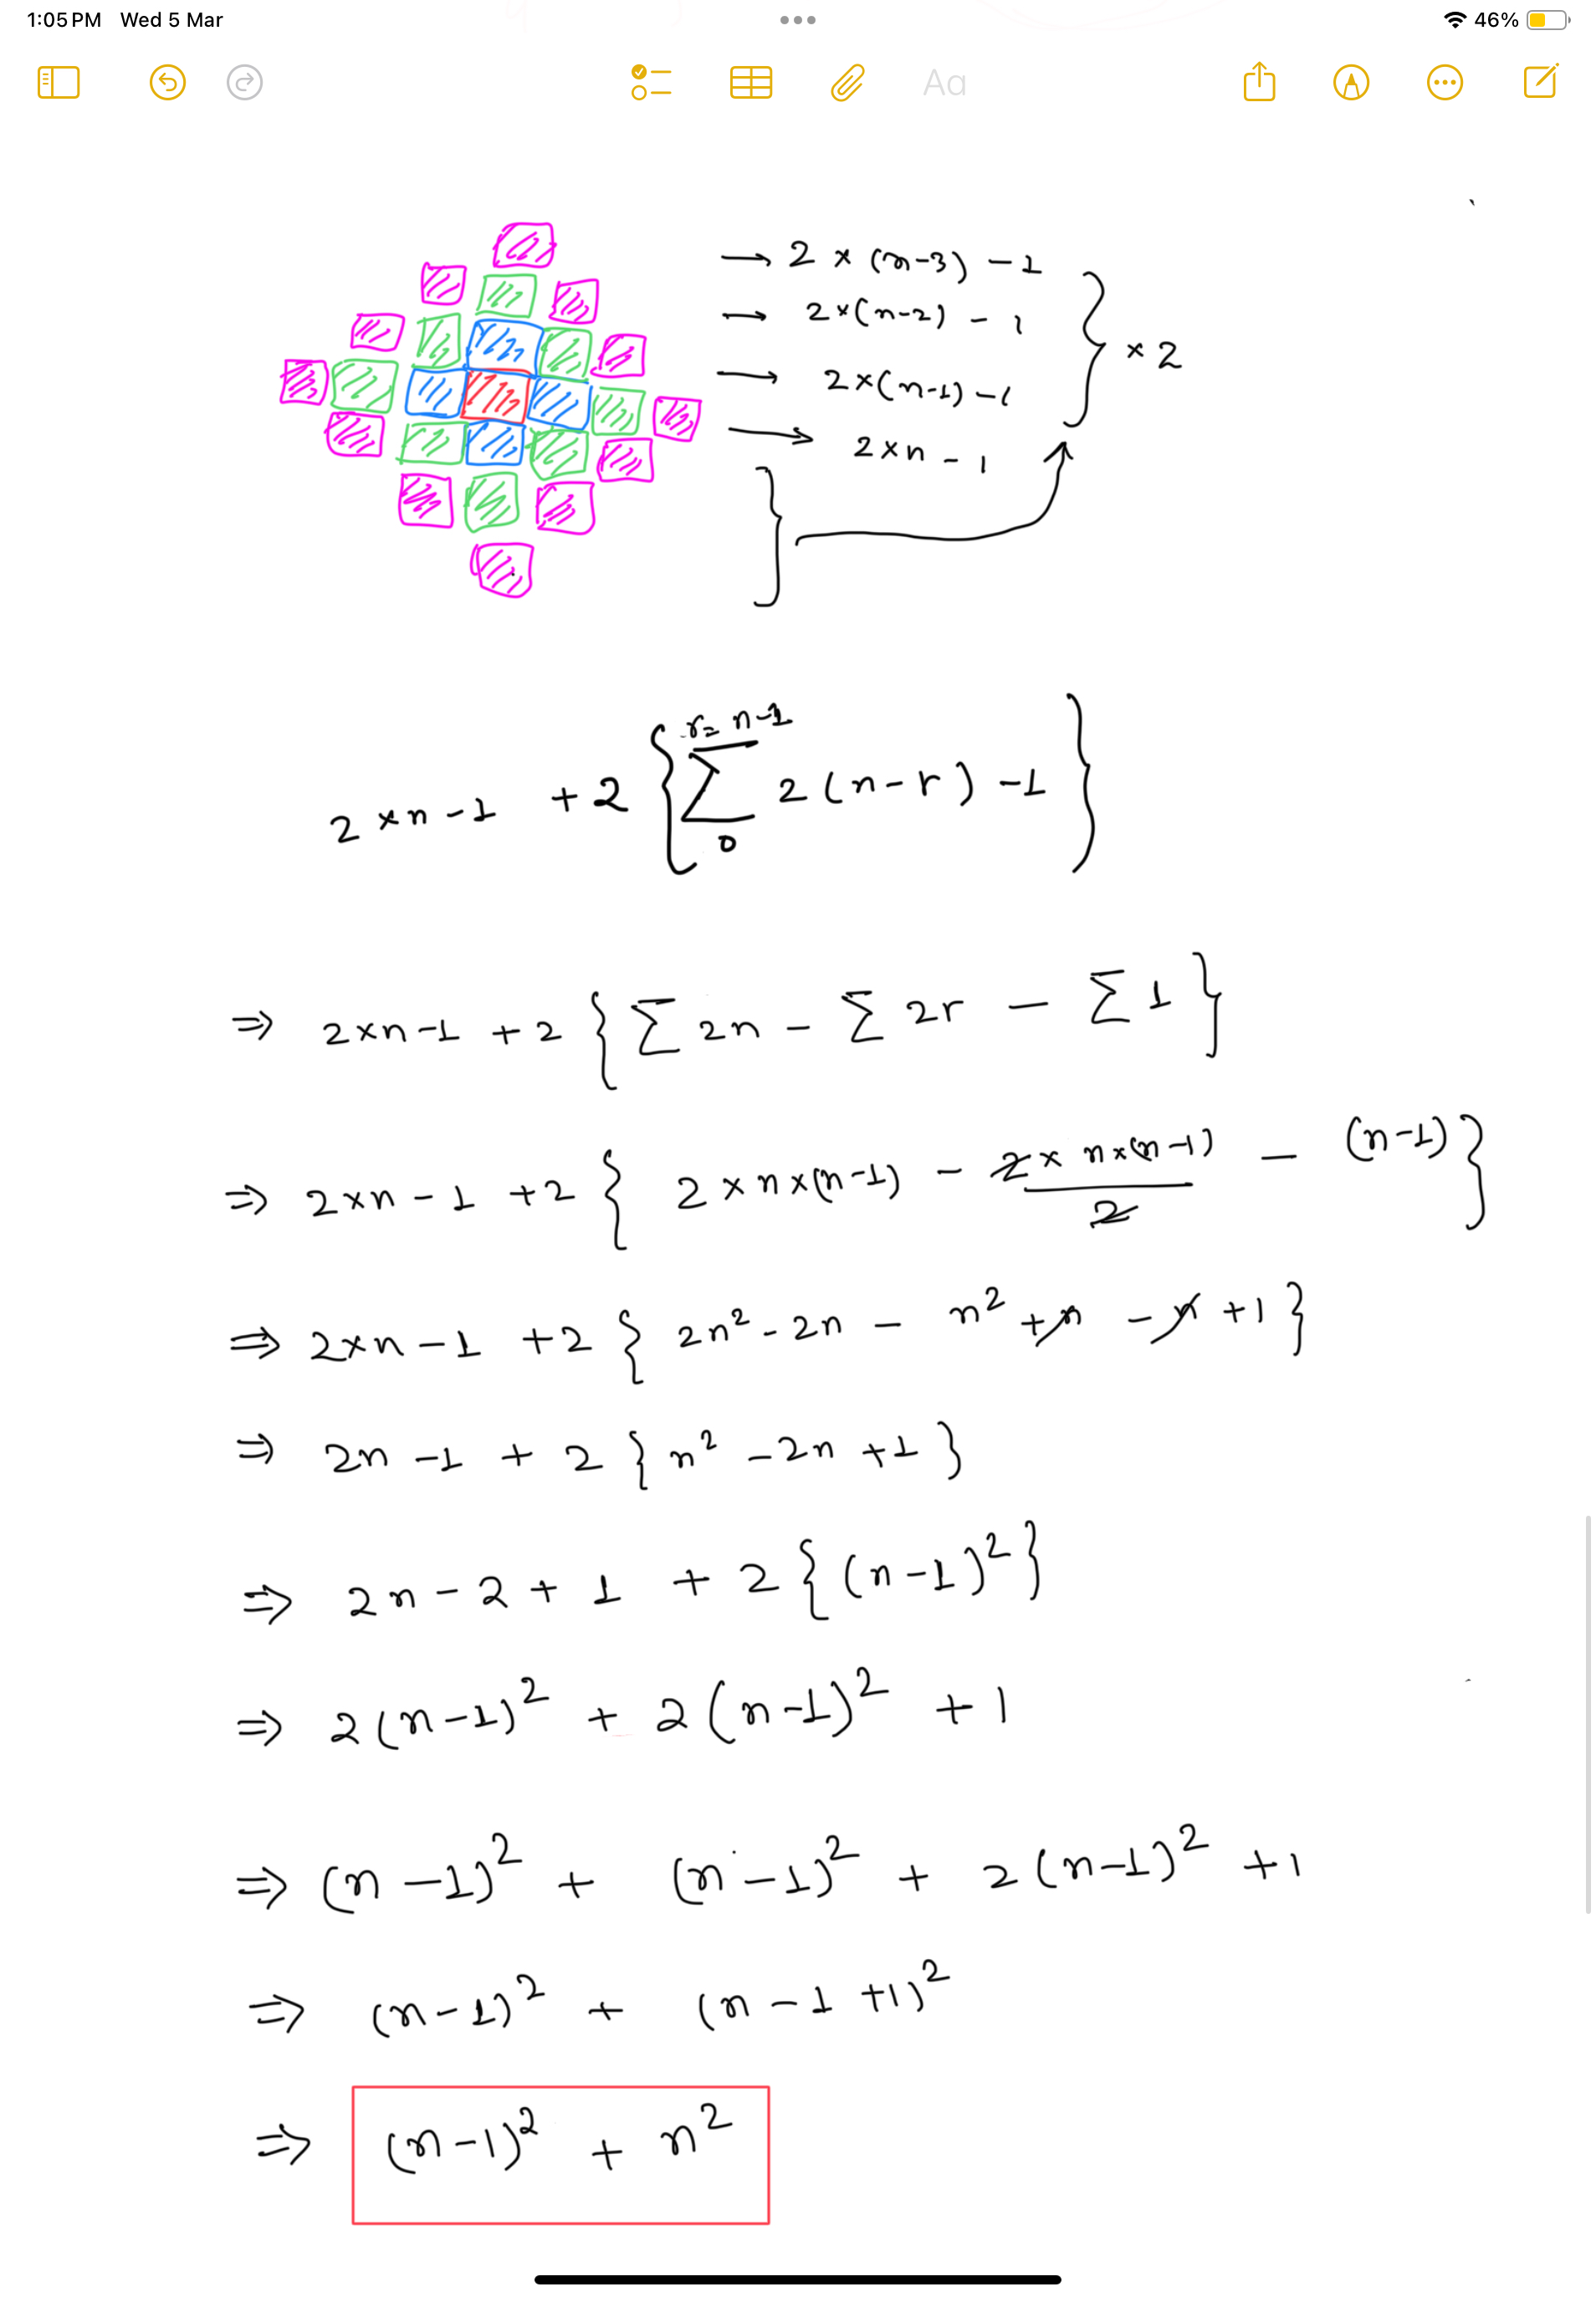 1:05 PM Wed 5 Mar
46%
Aa
→ 2 × (n-3) - 1
→ 2×(n-2) - 1
→ 2×(n-1) - 1
→ 2×n - 1
} × 2
2 × n - 1 + 2 { r= n-1 ∑ 0 2 (n-r) - 1 }
⇒ 2×n-1 + 2 { ∑ 2n - ∑ 2r - ∑ 1 }
⇒ 2×n - 1 + 2 { 2 × n×(n-1) - 2× n×(n-1) / 2 - (n-1) }
⇒ 2×n - 1 + 2 { 2n² - 2n - n² + n - n + 1 }
⇒ 2n - 1 + 2 { n² - 2n + 1 }
⇒ 2n - 2 + 1 + 2 { (n-1)² }
⇒ 2(n-1)² + 2(n-1)² + 1
⇒ (n-1)² + (n-1)² + 2(n-1)² + 1
⇒ (n-1)² + (n-1+1)²
⇒ (n-1)² + n²